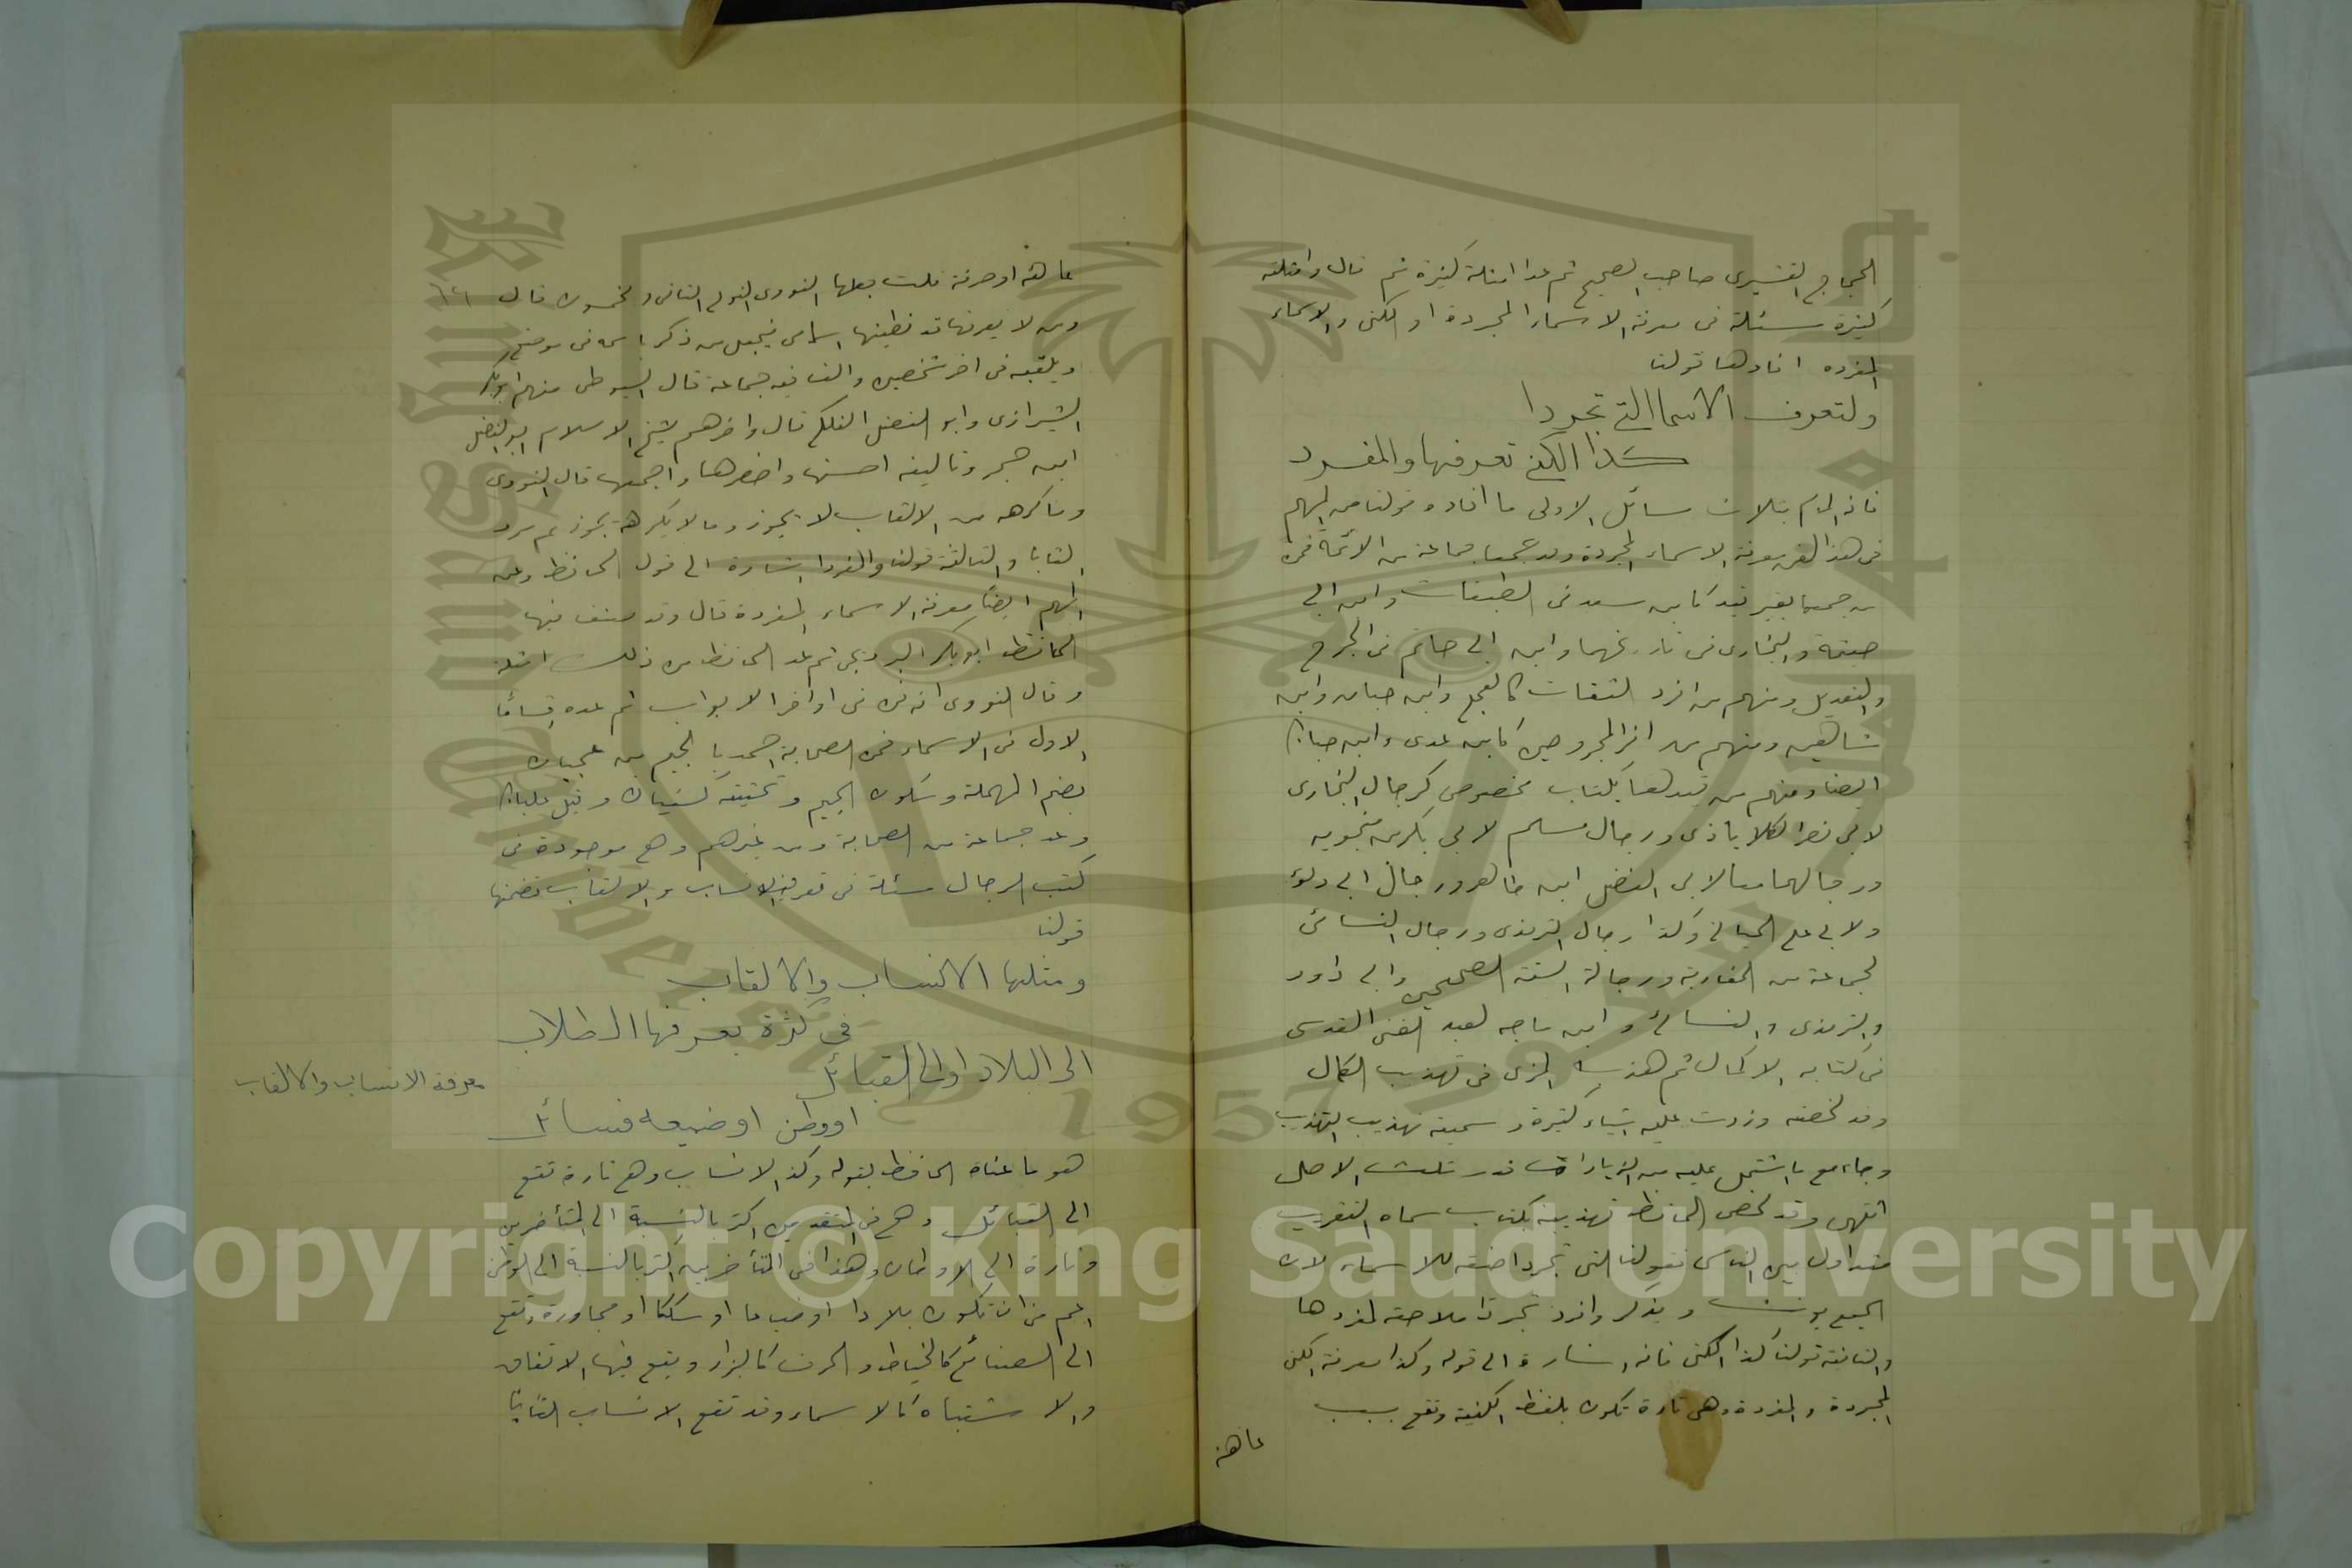 الحجاج القشيرى صاحب الصحيح ثم عدا امثلة كثيرة ثم قال وامثلته
كثيرة مسئلة فى معرفة الاسماء المجردة او الكنى والاسماء
المفرده افادها قولنا
ولتعرف الاسما التي تجردا
كذا الكنى تعرفها والمفرد
فانه المام بثلاث مسائل الاولى ما افاده قولنا من المهم
فى هذا الفن معرفة الاسماء المجردة وقد جمعها جماعة من الائمة فمن
من جمعها بغير قيد كابن سعد فى الطبقات وابن ابي
خيثمة والبخارى فى تاريخهما وابن ابي حاتم فى الجرح
والتعديل ومنهم من افرد الثقات كالعجلي وابن حبان وابن
شاهين ومنهم من افرد المجروحين كابن عدى وابن حبان
ايضا ومنهم من قيدها بكتاب مخصوص كرجال البخارى
لابي نصر الكلاباذى ورجال مسلم لابي بكر بن منجويه
ورجالهما معا لابي الفضل ابن طاهر ورجال ابي داود
ولابي علي الجياني وكذا رجال الترمذى ورجال النسائى
لجماعة من المغاربة ورجالة الستة الصحيحين وابي داود
والترمذى والنسائى وابن ماجه لعبد الغنى المقدسى
فى كتابه الاكمال ثم هذبه المزى فى تهذيب الكمال
وقد لخصته وزدت عليه اشياء كثيرة وسميته تهذيب التهذيب
وجاء مع ما اشتمل عليه من الزيادات قدر ثلث الاصل
انتهى وقد لخص الحافظ تهذيبه بكتاب سماه التقريب
متداول بين الناس فقولنا التى تجردا صفة للاسماء لان
الجمع يونث ويذكر وافرد تجردا ملاحظة لمفردها
والثانية قولنا كذا الكنى فانه اشارة الى قوله وكذا معرفة الكنى
المجردة والمفردة وهى تارة تكون بلفظ الكنية وتقع بسبب
عاهة
عاهة او حرفة قلت جعلها النووى النوع الثانى والخمسون قال
ومن لا يعرفها قد يظنها اسامى فيجعل من ذكر باسمه فى موضع
ويلقبه فى اخر شخصين والف فيه جماعة قال السيوطى منهم ابوبكر
الشيرازى وابو الفضل الفلكي قال واخرهم شيخ الاسلام ابو الفضل
ابن حجر وتاليفه احسنها واخصرها واجمعها قال النووى
وما كرهه من الالقاب لا يجوز وما لا يكرهه يجوز ثم سرد
القابا والثالثة قولنا والمفرد اشارة الى قول الحافظ ومن
المهم ايضا معرفة الاسماء المفردة قال وقد صنف فيها
الحافظ ابو بكر البرديجي ثم عد الحافظ من ذلك امثلة
وقال النووى انه فن فى اواخر الابواب ثم عده اقساما
الاول فى الاسماء فمن الصحابة احمد بالجيم بن عجيان
بضم المهملة وسكون الجيم وتحتية كسفيان وقيل عليان
وعد جماعة من الصحابة ومن غيرهم وهي موجودة فى
كتب الرجال مسئلة فى تعريف الانساب والالقاب تضمنها
قولنا
ومثلها الانساب والالقاب
في كثرة يعرفها الطلاب
الى البلاد او الى القبائل
او وطن او ضيعه فسائل
معرفة الانساب والالقاب
هو ما عناه الحافظ بقوله وكذا الانساب وهي تارة تقع
الى القبائل وهي فى المتقدمين اكثر بالنسبة الى المتأخرين
وتارة الى الاوطان وهذا فى المتأخرين اكثر بالنسبة الى الوطن
اعم من ان تكون بلادا او ضياعا او سككا او مجاورة وتقع
الى الصنائع كالخياط والحرف كالبزار ويقع فيها الاتفاق
والاشتباه كالاسماء وقد تقع الانساب القابا